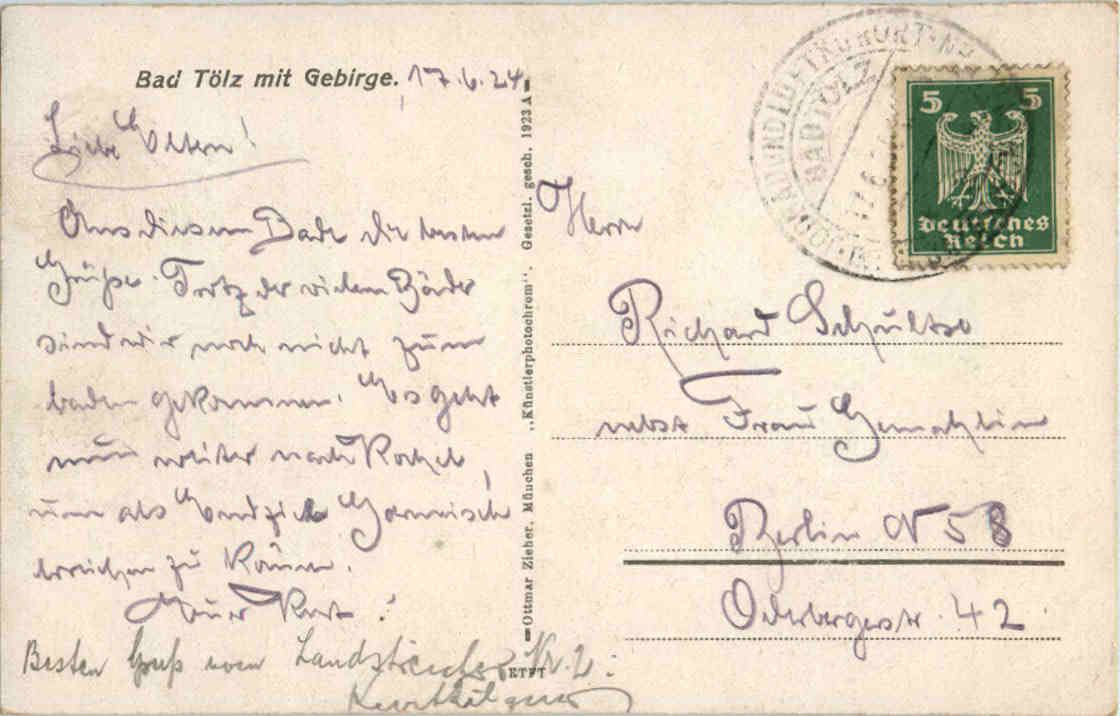 Bad Tölz mit Gebirge. 17.6.24
Liebe Eltern!
Aus diesem Bade die besten
Grüße. Trotz der vielen Bäder
sind wir noch nicht zum
baden gekommen. Es geht
nun weiter nach Kochel,
um als Endziel Garmisch
erreichen zu können.
Euer Kurt!
Besten Gruß vom Landstreicher Nr. 2:
Ottmar Zieher, München „Künstlerphotochrom“. Gesetzl. gesch. 1923 A
ETFT
BAD TÖLZ
17.6.
5 5
Deutsches
Reich
Herrn
Richard Schultze
nebst Frau Gemahlin
Berlin N 58
Oderbergerstr. 42